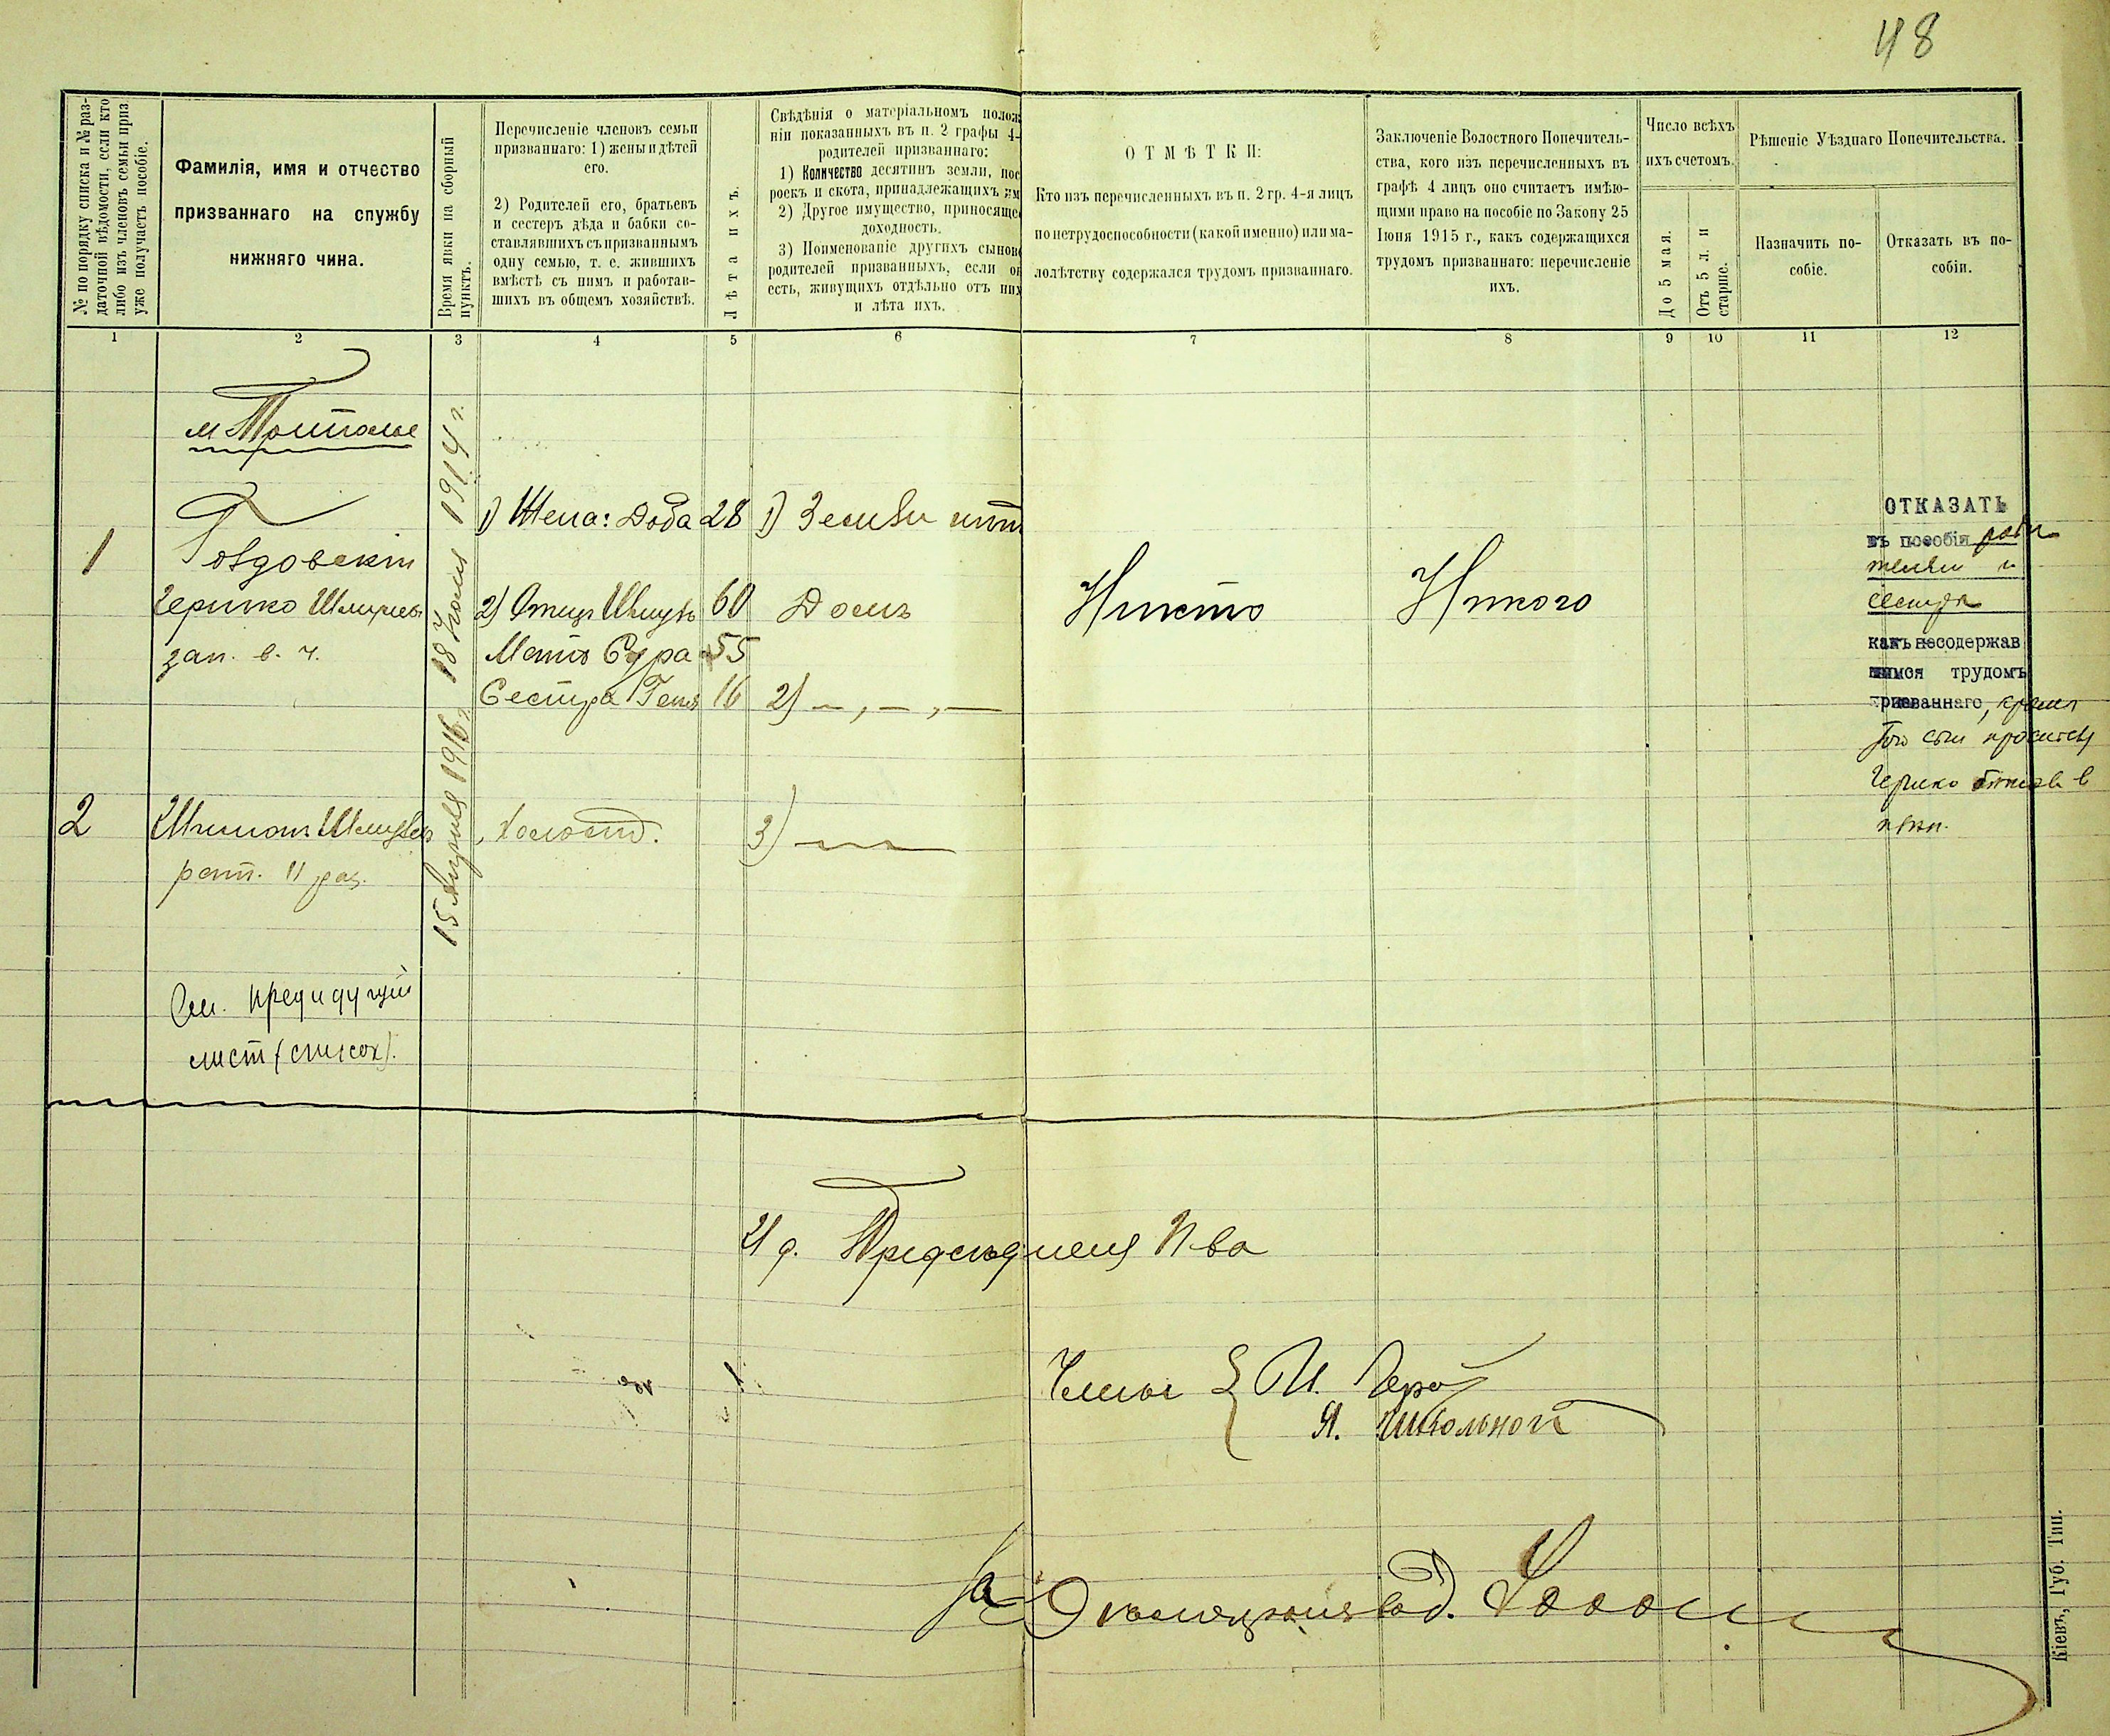 48
№ по порядку списка и № раз-
даточной вѣдомости, если кто
либо изъ членовъ семьи приз
уже получаетъ пособіе.
Фамилія, имя и отчество
призваннаго на службу
нижняго чина.
Время явки на сборный
пунктъ.
Перечисленіе членовъ семьи
призваннаго: 1) жены и дѣтей
его.
2) Родителей его, братьевъ
и сестеръ дѣда и бабки со-
ставлявшихъ съ призваннымъ
одну семью, т. е. жившихъ
вмѣстѣ съ нимъ и работав-
шихъ въ общемъ хозяйствѣ.
Лѣта ихъ.
Свѣдѣнія о матеріальномъ полож
ніи показанныхъ въ п. 2 графы 4-
родителей призваннаго:
1) Количество десятинъ земли, пос
роекъ и скота, принадлежащихъ им
2) Другое имущество, приносяще
доходность.
3) Поименованіе другихъ сынов
родителей призванныхъ, если он
есть, живущихъ отдѣльно отъ них
и лѣта ихъ.
ОТМѢТКИ:
Кто изъ перечисленныхъ въ п. 2 гр. 4-я лицъ
по нетрудоспособности (какой именно) или ма-
лолѣтству содержался трудомъ призваннаго.
Заключеніе Волостного Попечитель-
ства, кого изъ перечисленныхъ въ
графѣ 4 лицъ оно считаетъ имѣю-
щими право на пособіе по Закону 25
Іюня 1915 г., какъ содержащихся
трудомъ призваннаго: перечисленіе
ихъ.
Число всѣхъ
ихъ счетомъ.
До 5 мая.
Отъ 5 л. и
старше.
Рѣшеніе Уѣзднаго Попечительства.
Назначить по-
собіе.
Отказать въ по-
собіи.
1 2 3 4 5 6 7 8 9 10 11 12
м
18 Іюля 1914 г.
1
Гершко Шмулевъ
зап. в. ч.
1) Жена: Доба 28
2) Отецъ Шмуль 60
Мать Сура 55
Сестра Геня 16
1) Земли нѣтъ
Домъ
2) — „ — „ —
Никто
Никого
ОТКАЗАТЬ
въ пособіи роди
телям и
сестре
какъ несодержав
шимся трудомъ
призваннаго, кроме
того сын
Гершко в
плен.
15 Апреля 1916 г.
2
Шмулевъ
рат. II раз.
холостъ.
3) —
См. предидущій
лист (список).
И д. Председателя П-ва
Члены { И.
Я. Школьной
За
Кіевъ, Губ. Тип.